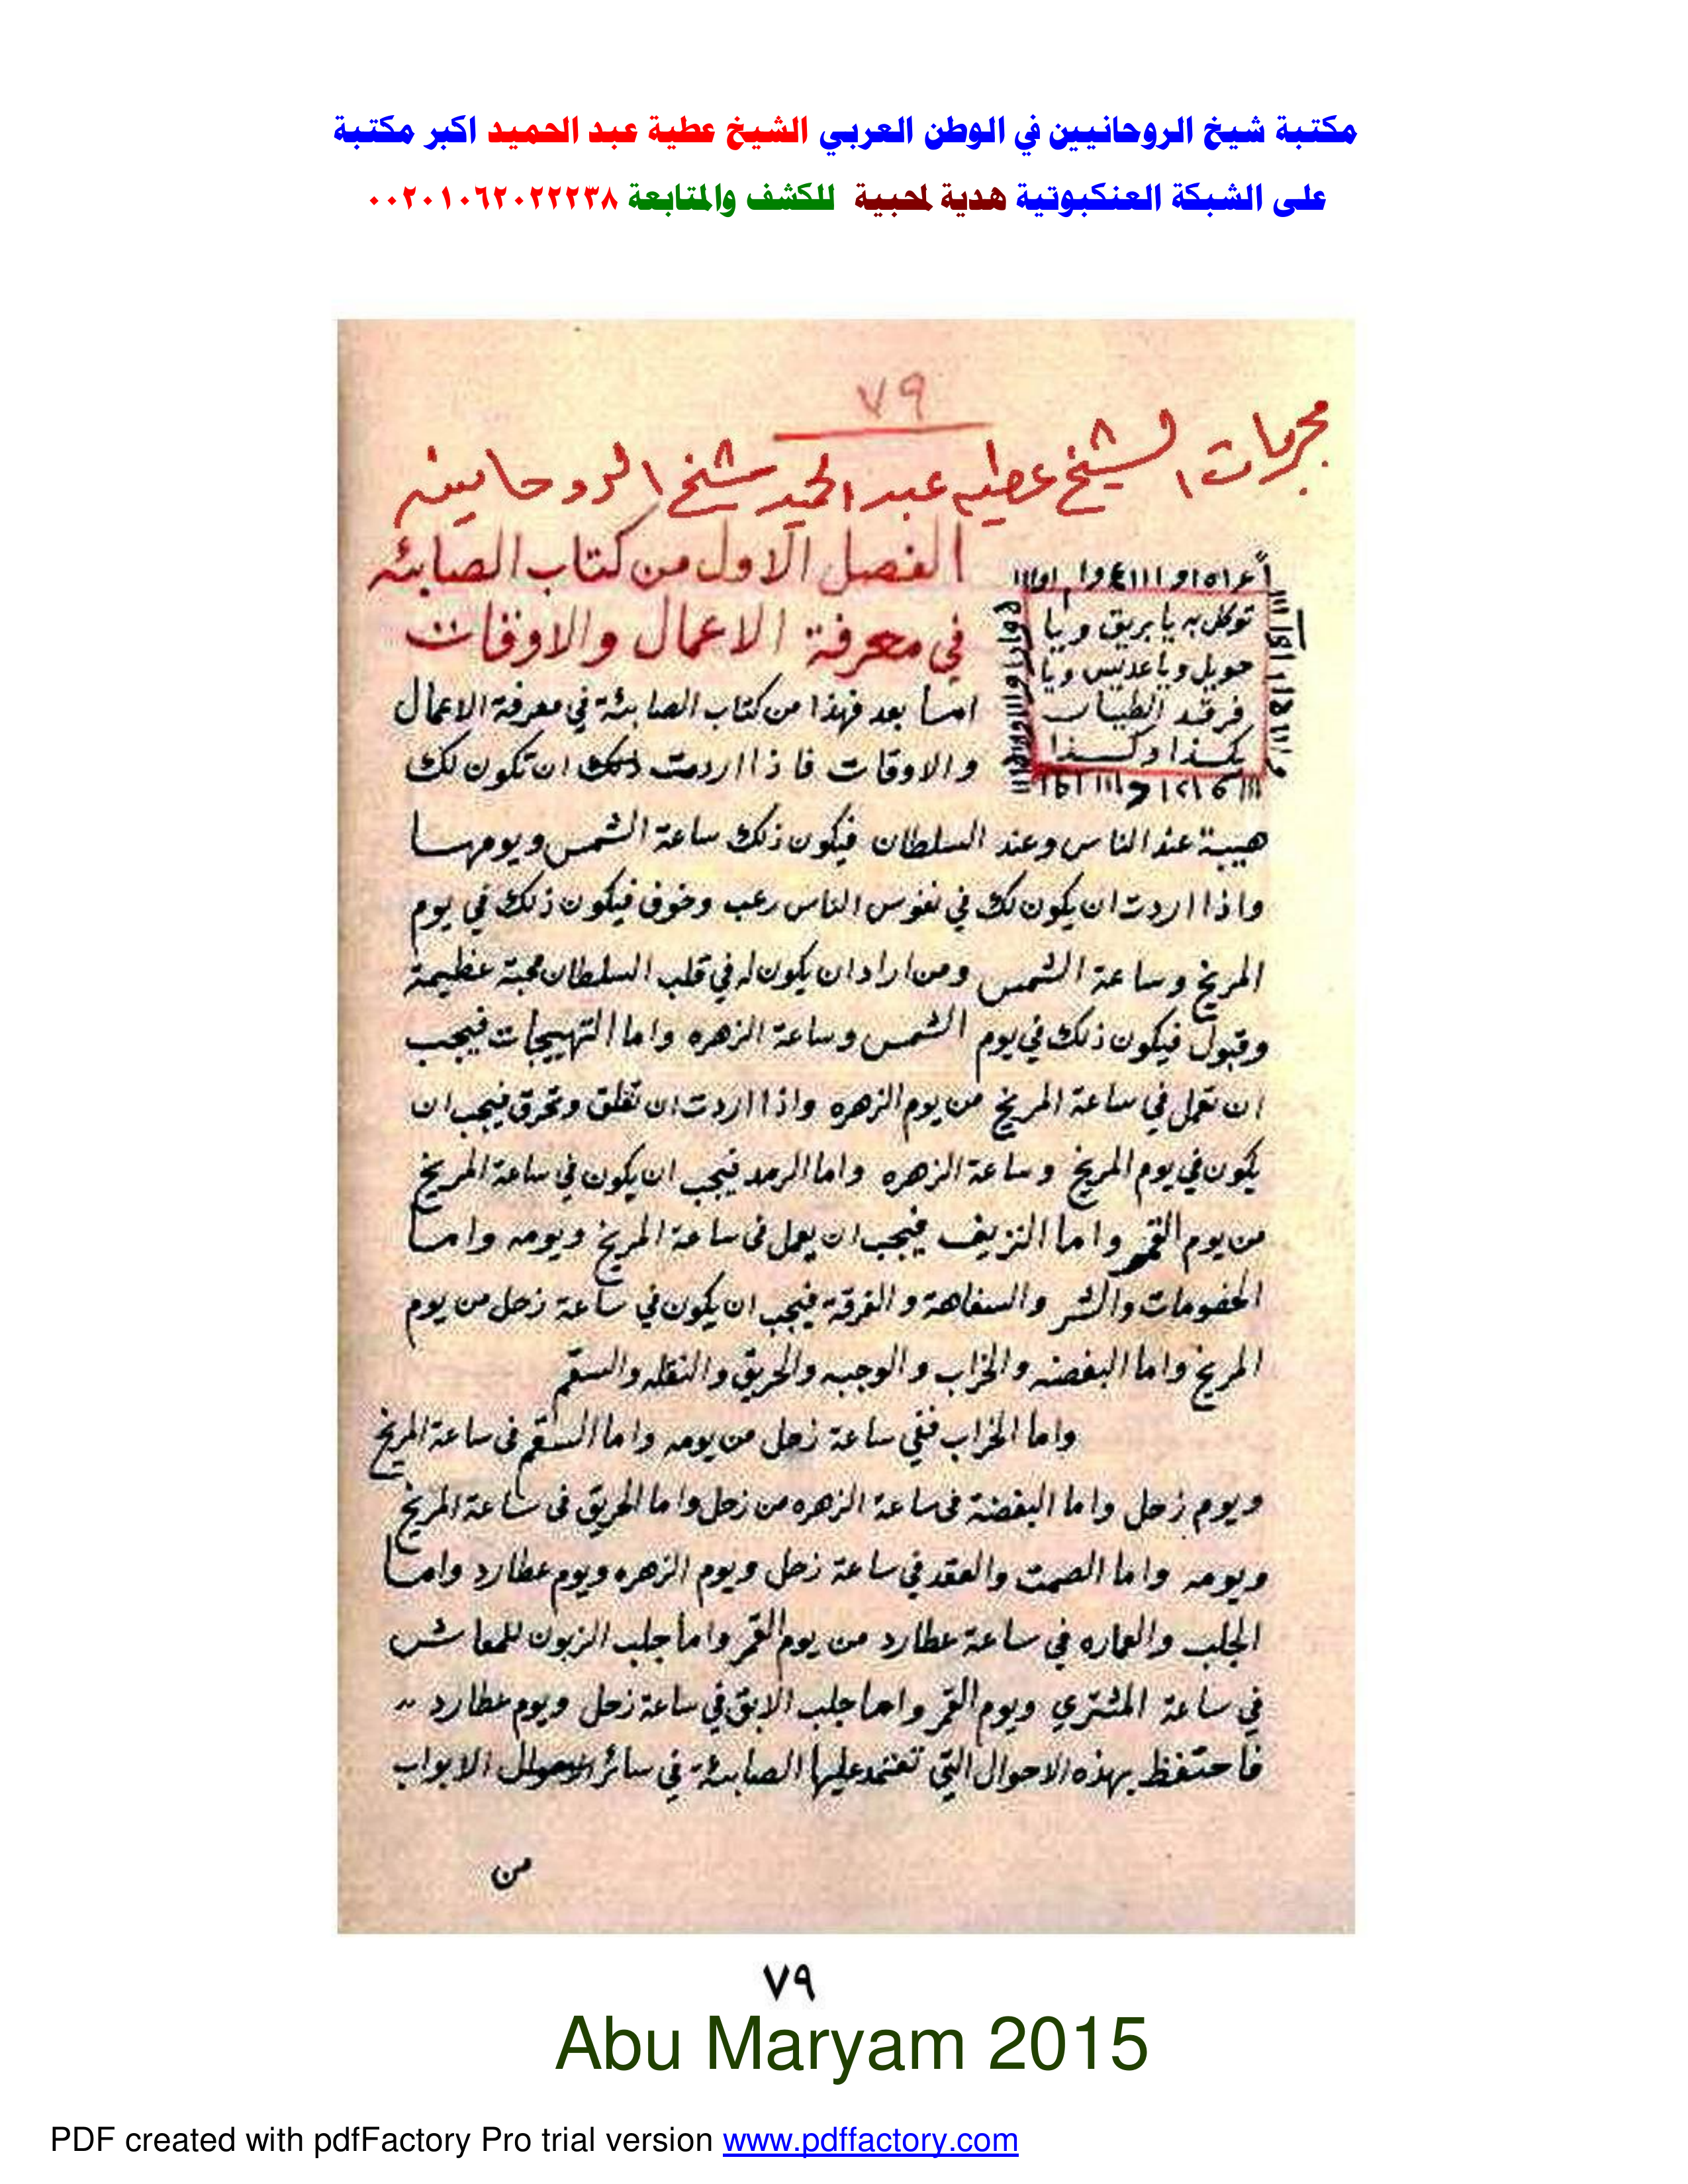 مكتبة شيخ الروحانيين في الوطن العربي الشيخ عطية عبد الحميد اكبر مكتبة
على الشبكة العنكبوتية هدية لمحبية للكشف والمتابعة ٠٠٢٠١٠٦٢٠٢٢٢٣٨
٧٩
مجربات الشيخ عطيه عبد الحميد شيخ الروحانين
الفصل الاول من كتاب الصابئه
في معرفة الاعمال والاوقات
توكل به يا بريق ويا
حويل ويا عديس ويا
فرقد الطيار
بكذا وكذا
اما بعد فهذا من كتاب الصابئة في معرفة الاعمال
والاوقات فاذا اردت ذلك ان تكون لك
هيبة عند الناس وعند السلطان فيكون ذلك ساعة الشمس ويومها
واذا اردت ان يكون لك في نفوس الناس رعب وخوف فيكون ذلك في يوم
المريخ وساعة الشمس ومن اراد ان يكون له في قلب السلطان محبة عظيمة
وقبول فيكون ذلك في يوم الشمس وساعة الزهره واما التهييجات فيجب
ان تعمل في ساعة المريخ من يوم الزهره واذا اردت ان تقلق وتحرق فيجب ان
يكون في يوم المريخ وساعة الزهره واما الرمد فيجب ان يكون في ساعة المريخ
من يوم القمر واما النزيف فيجب ان يعمل في ساعة المريخ ويومه واما
الخصومات والشر والسفاهة والفرقة فيجب ان يكون في ساعة زحل من يوم
المريخ واما البغضه والخراب والوجبه والحريق والنقله والسقم
واما الخراب ففي ساعة زحل من يومه واما السقم في ساعة المريخ
ويوم زحل واما البغضة في ساعة الزهره من زحل واما الحريق في ساعة المريخ
ويومه واما الصمت والعقد في ساعة زحل ويوم الزهره ويوم عطارد واما
الجلب والعماره في ساعة عطارد من يوم القمر واما جلب الزبون للمعاش
في ساعة المشتري ويوم القمر واما جلب الابق في ساعة زحل ويوم عطارد
فاحتفظ بهذه الاحوال التي تعتمد عليها الصابئة في سائر الابواب
من
٧٩
Abu Maryam 2015
PDF created with pdfFactory Pro trial version www.pdffactory.com